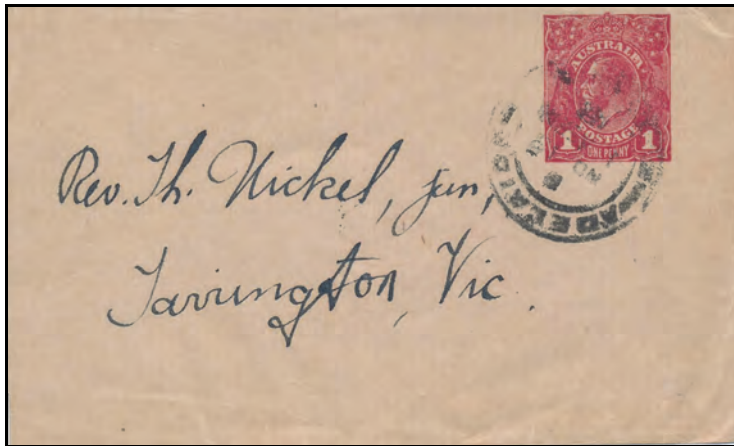 AUSTRALIA
POSTAGE
1 ONE PENNY 1
ADELAIDE
Rev. Th. Nickel, jun,
Tarrington, Vic.